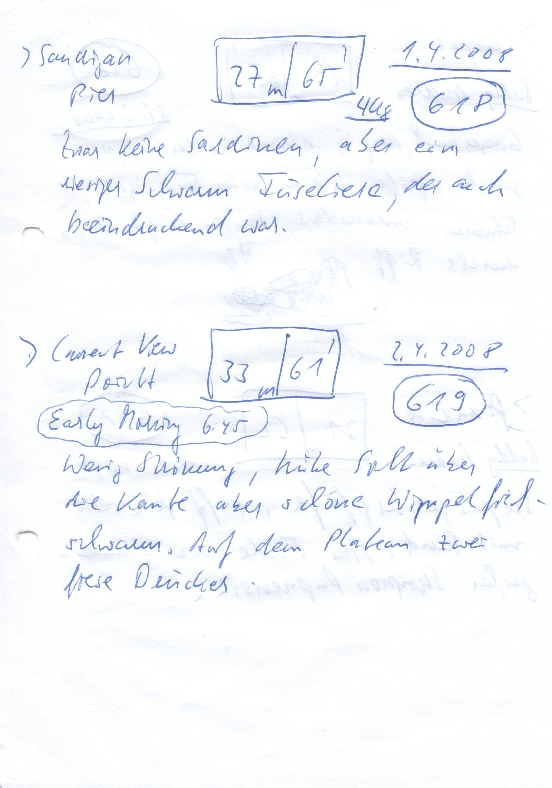 Sandijan 27m 65' 1.4.2008
Pier 4Kg 618
Zwar keine Sardinen, aber ein
riesiger Schwarm Füseliere, der auch
beeindruckend war.
Current View 33m 61' 2.4.2008
Point 619
Early Morning 6.45
Wenig Strömung, trübe Soll über
die Kante aber schöne Wimpelfisch-
schwarm. Auf dem Plateau zwei
freie Drücker.